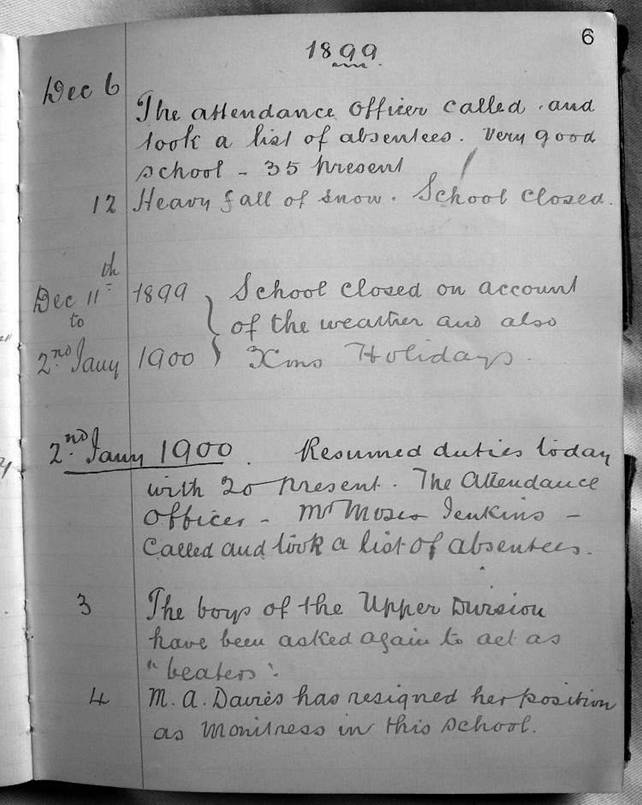 6
1899
Dec 6
The attendance officer called and
took a list of absentees. Very good
school - 35 present
12 Heavy fall of snow. School closed.
Dec 11th 1899 School closed on account
to of the weather and also
2nd Jany 1900 Xmas Holidays.
2nd Jany 1900. Resumed duties today
with 20 present. The Attendance
Officer - Mr Moses Jenkins -
Called and took a list of absentees.
3 The boys of the Upper Division
have been asked again to act as
"beaters".
4 M. A. Davies has resigned her position
as Monitress in this school.